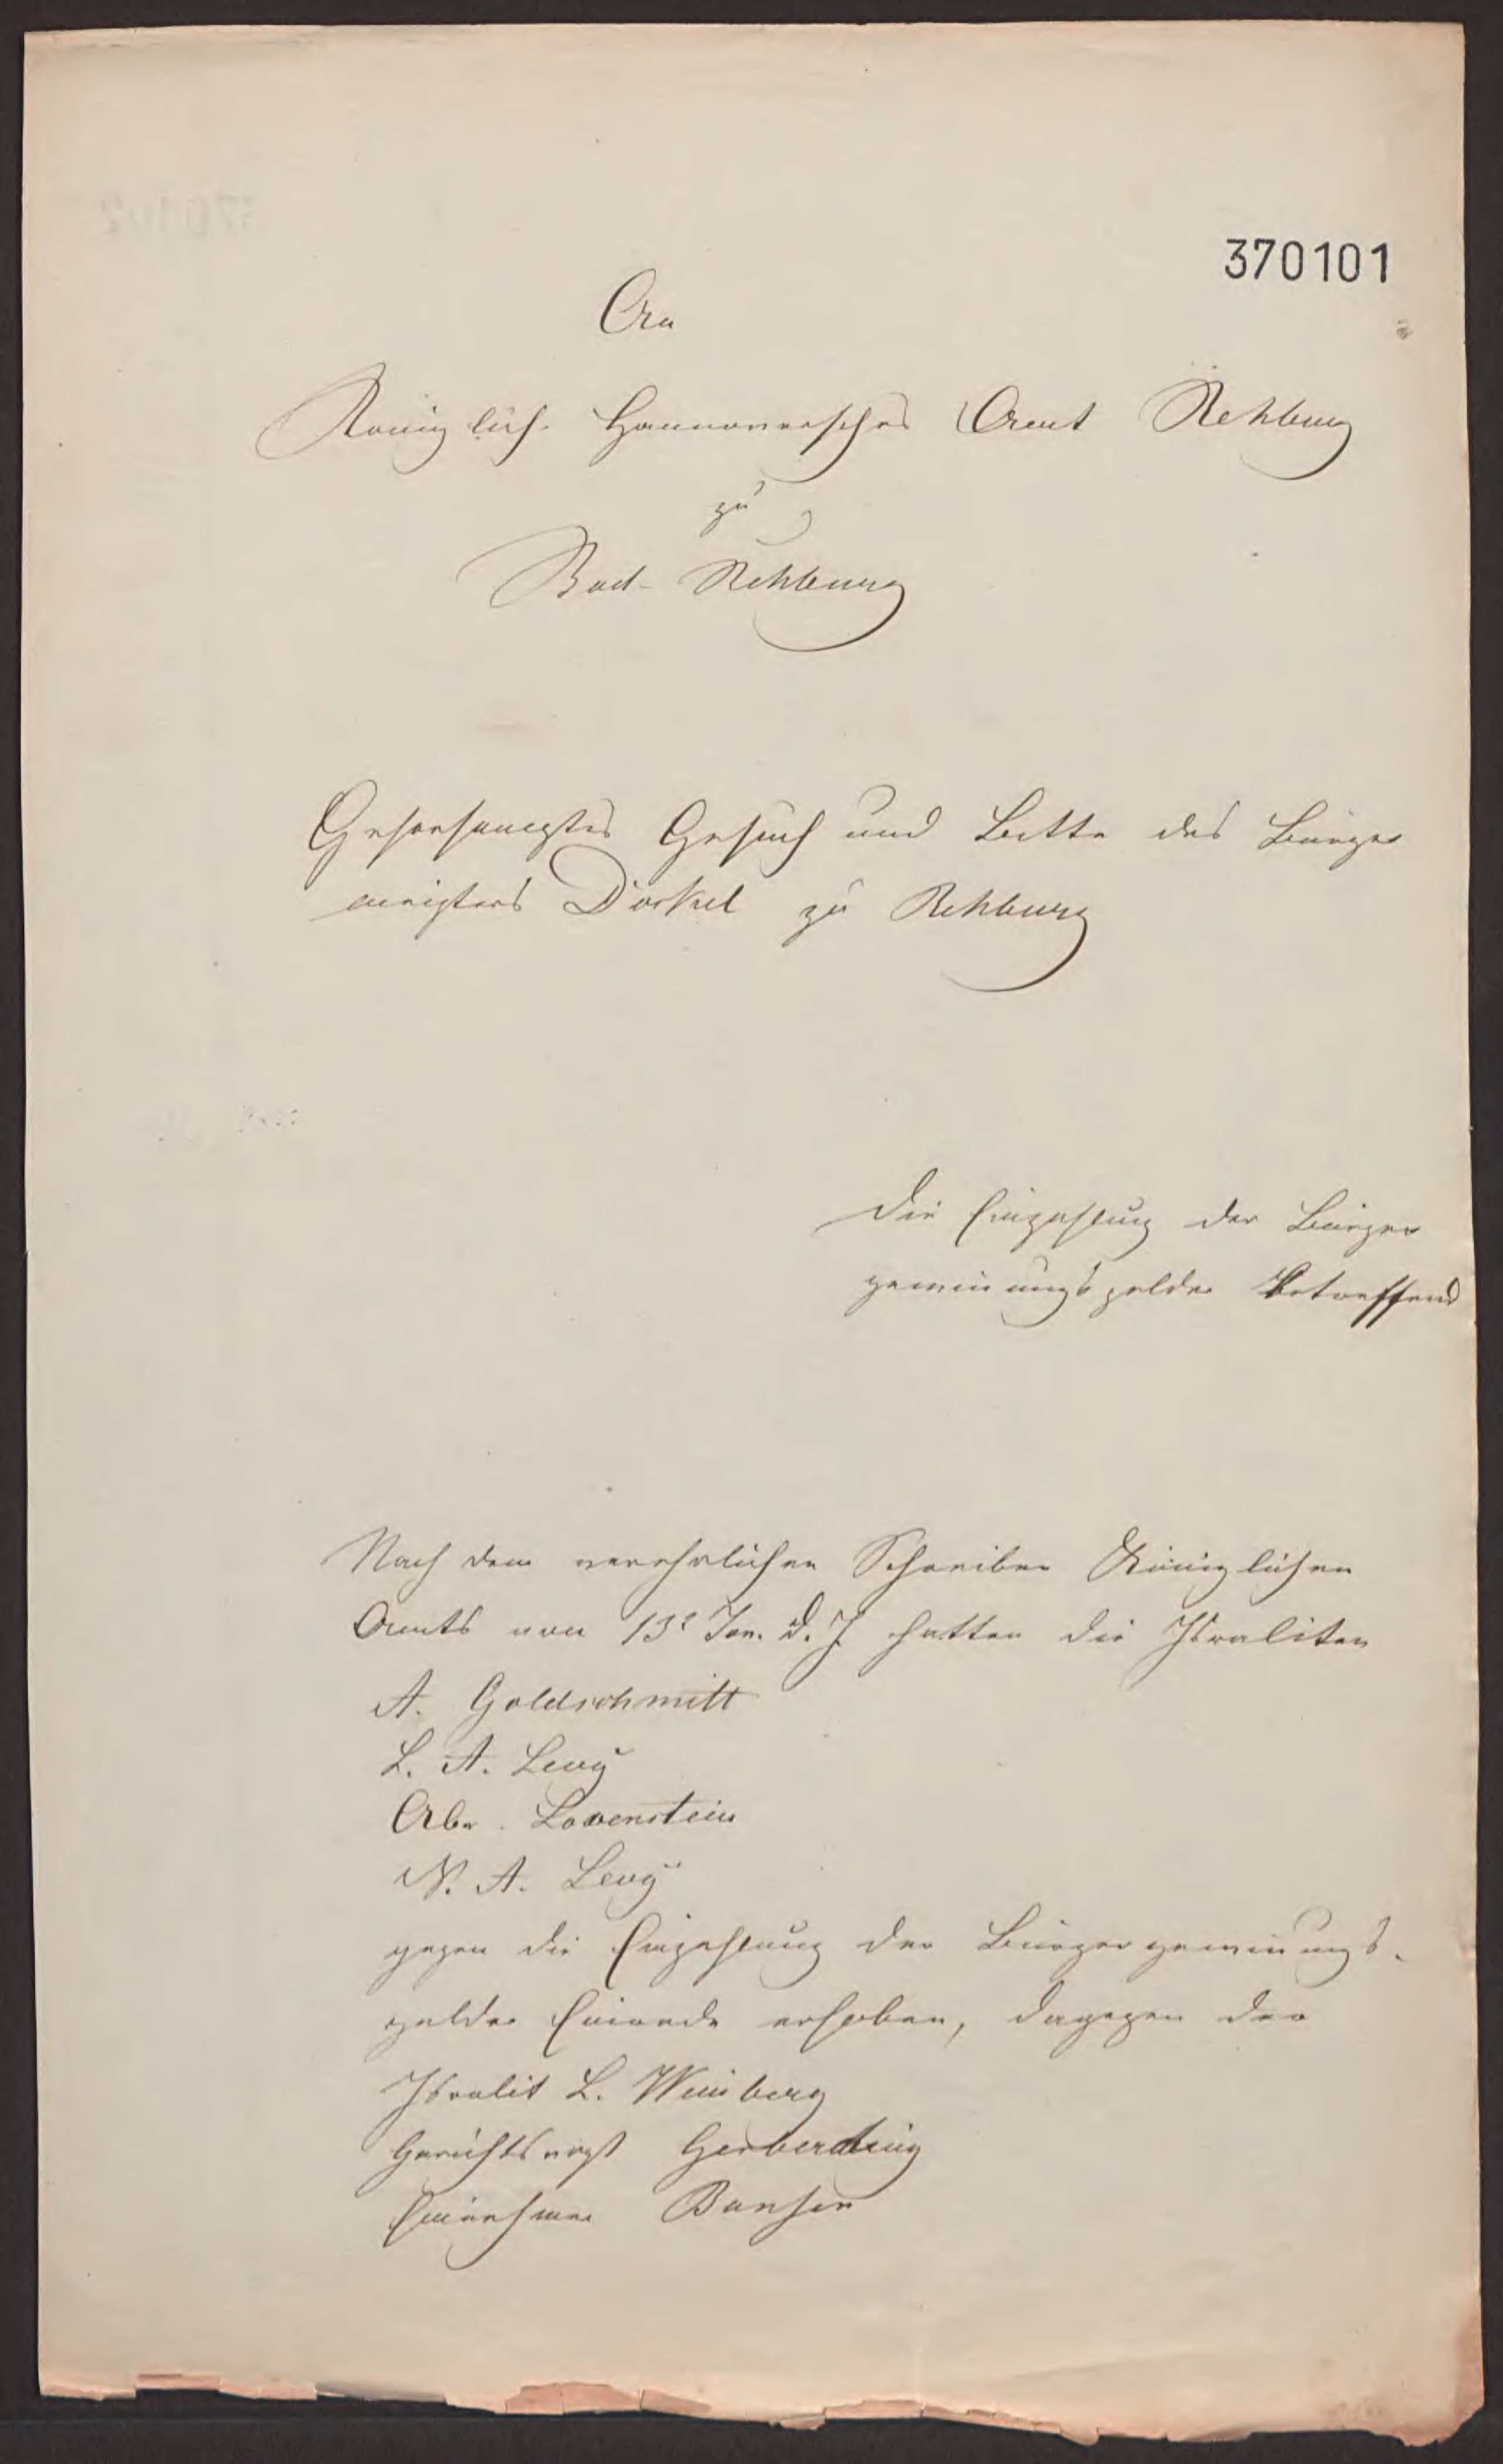 370101
An
Königlich Hannoversches Amt Rehburg
zu
Bad-Rehburg
Gehorsamstes Gesuch und Bitte des Bürger
meisters Dörkel zu Rehburg
die Einzahlung der Bürger
gewinnungsgelder betreffend
Nach dem verehrlichen Schreiben Königlichen
Amts vom 13t Jan. d. J. hatten die Israeliten
A. Goldschmitt
L. A. Levy
Abr. Lövenstein
N. A. Levy
gegen die Einzahlung der Bürgergewinnungs-
gelder Einrede erhoben, dagegen der
Israelit L. Weinberg
Gerichtsvogt Gerberding
Einnehmer Bansen